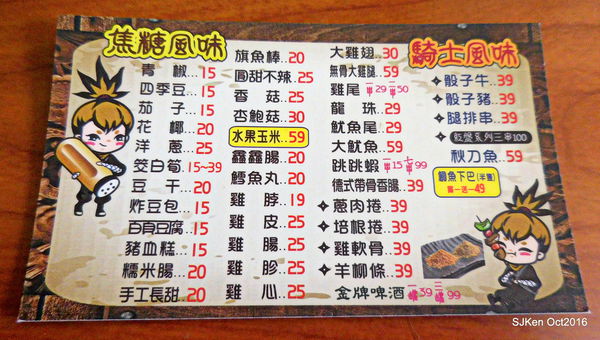 焦糖風味
青椒..15
四季豆..15
茄子..15
花椰..20
洋蔥..25
茭白筍.15~39
豆干..20
炸豆包..15
百頁豆腐..15
豬血糕..15
糯米腸...20
手工長甜..20
旗魚棒..20
圓甜不辣..25
香菇..25
杏鮑菇..30
水果玉米..59
鑫鑫腸..20
鱈魚丸..20
雞脖..19
雞皮..25
雞腸..25
雞胗..25
雞心..25
大雞翅..30
無骨大雞腿..59
雞尾..一串29二串50
龍珠..29
魷魚尾..29
大魷魚..59
跳跳蝦..一串15七串99
德式帶骨香腸..39
蔥肉捲..39
培根捲..39
雞軟骨..39
羊柳條..39
金牌啤酒 一罐39三罐99
騎士風味
骰子牛..39
骰子豬..39
腿排串..39
骰盤系列三串100
秋刀魚..59
鯛魚下巴(半畫)
買一送一49
SJKen Oct2016